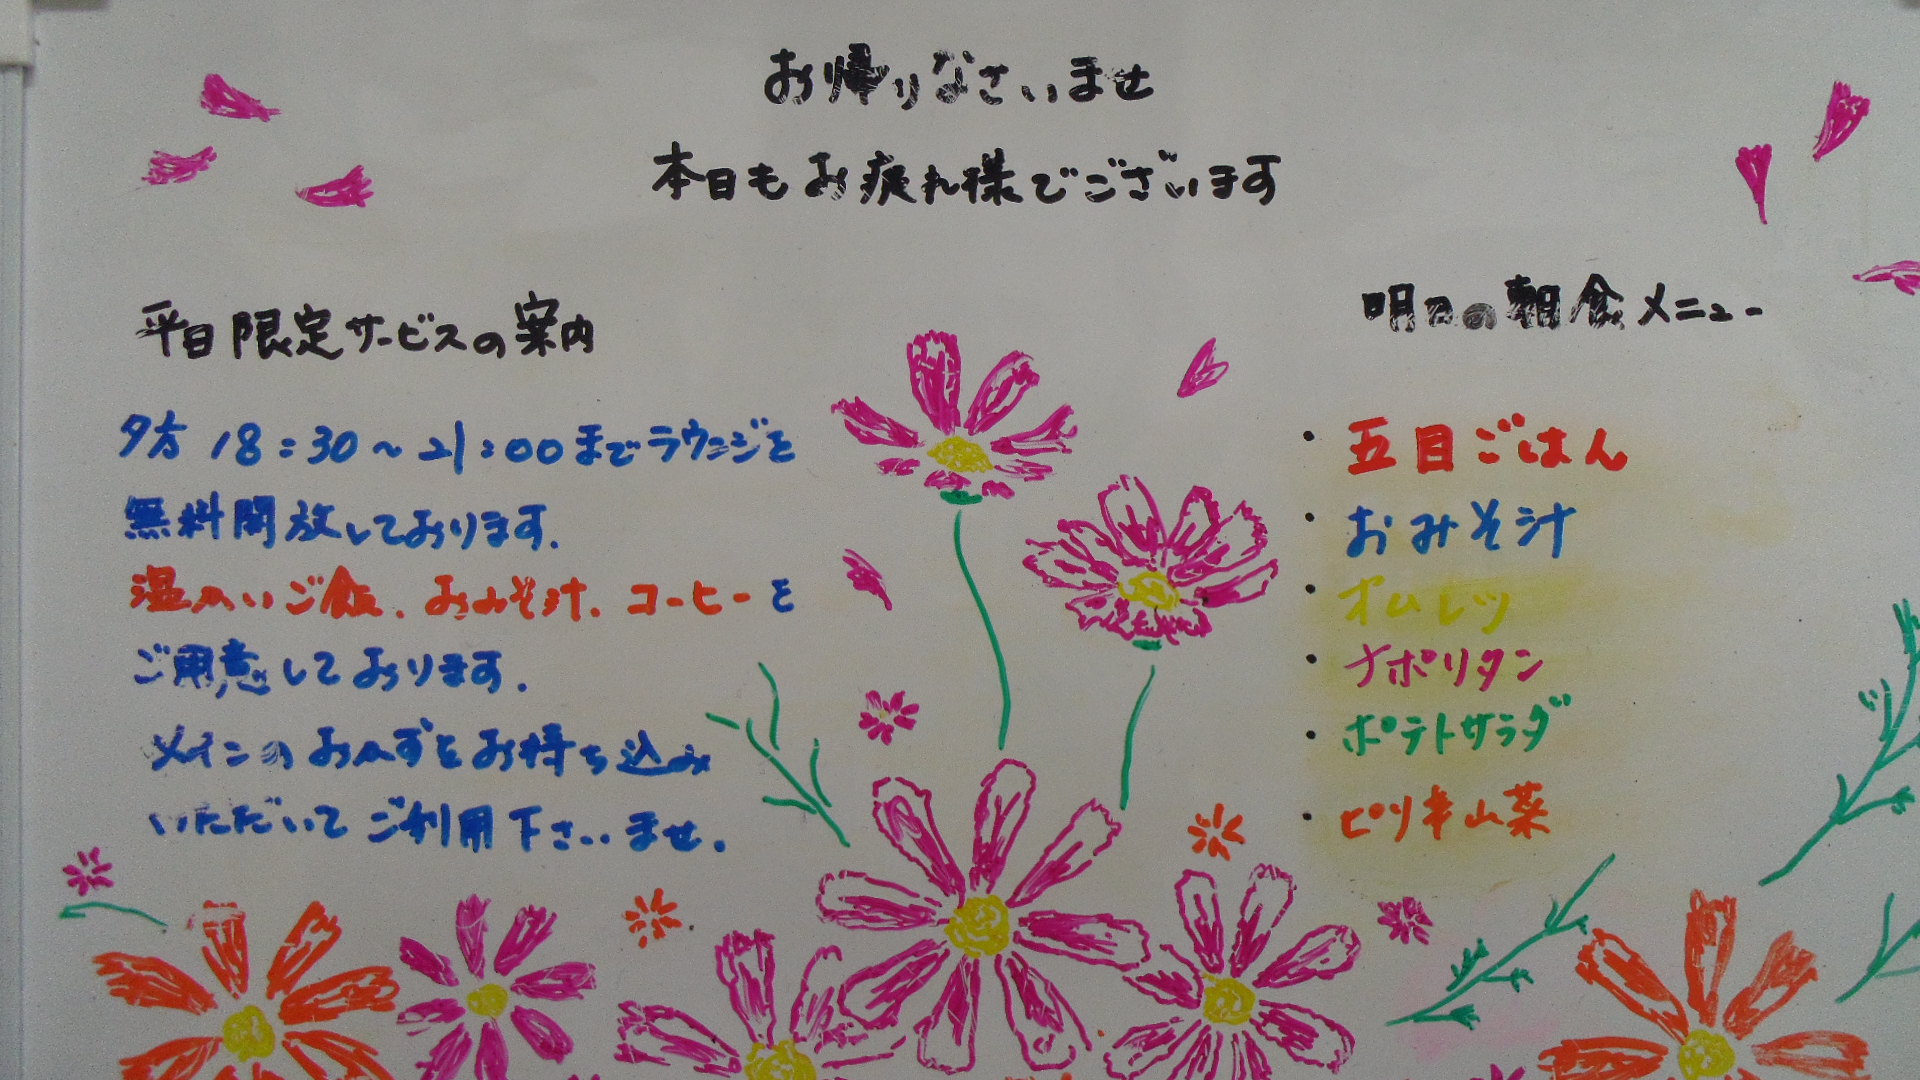 お帰りなさいませ
本日もお疲れ様でございます
平日限定サービスの案内
夕方 18:30～21:00までラウンジを
無料開放しております.
温かいご飯.おみそ汁.コーヒーを
ご用意しております.
メインのおかずをお持ち込み
いただいてご利用下さいませ.
明日の朝食メニュー
・五目ごはん
・おみそ汁
・オムレツ
・ナポリタン
・ポテトサラダ
・ピリ辛山菜